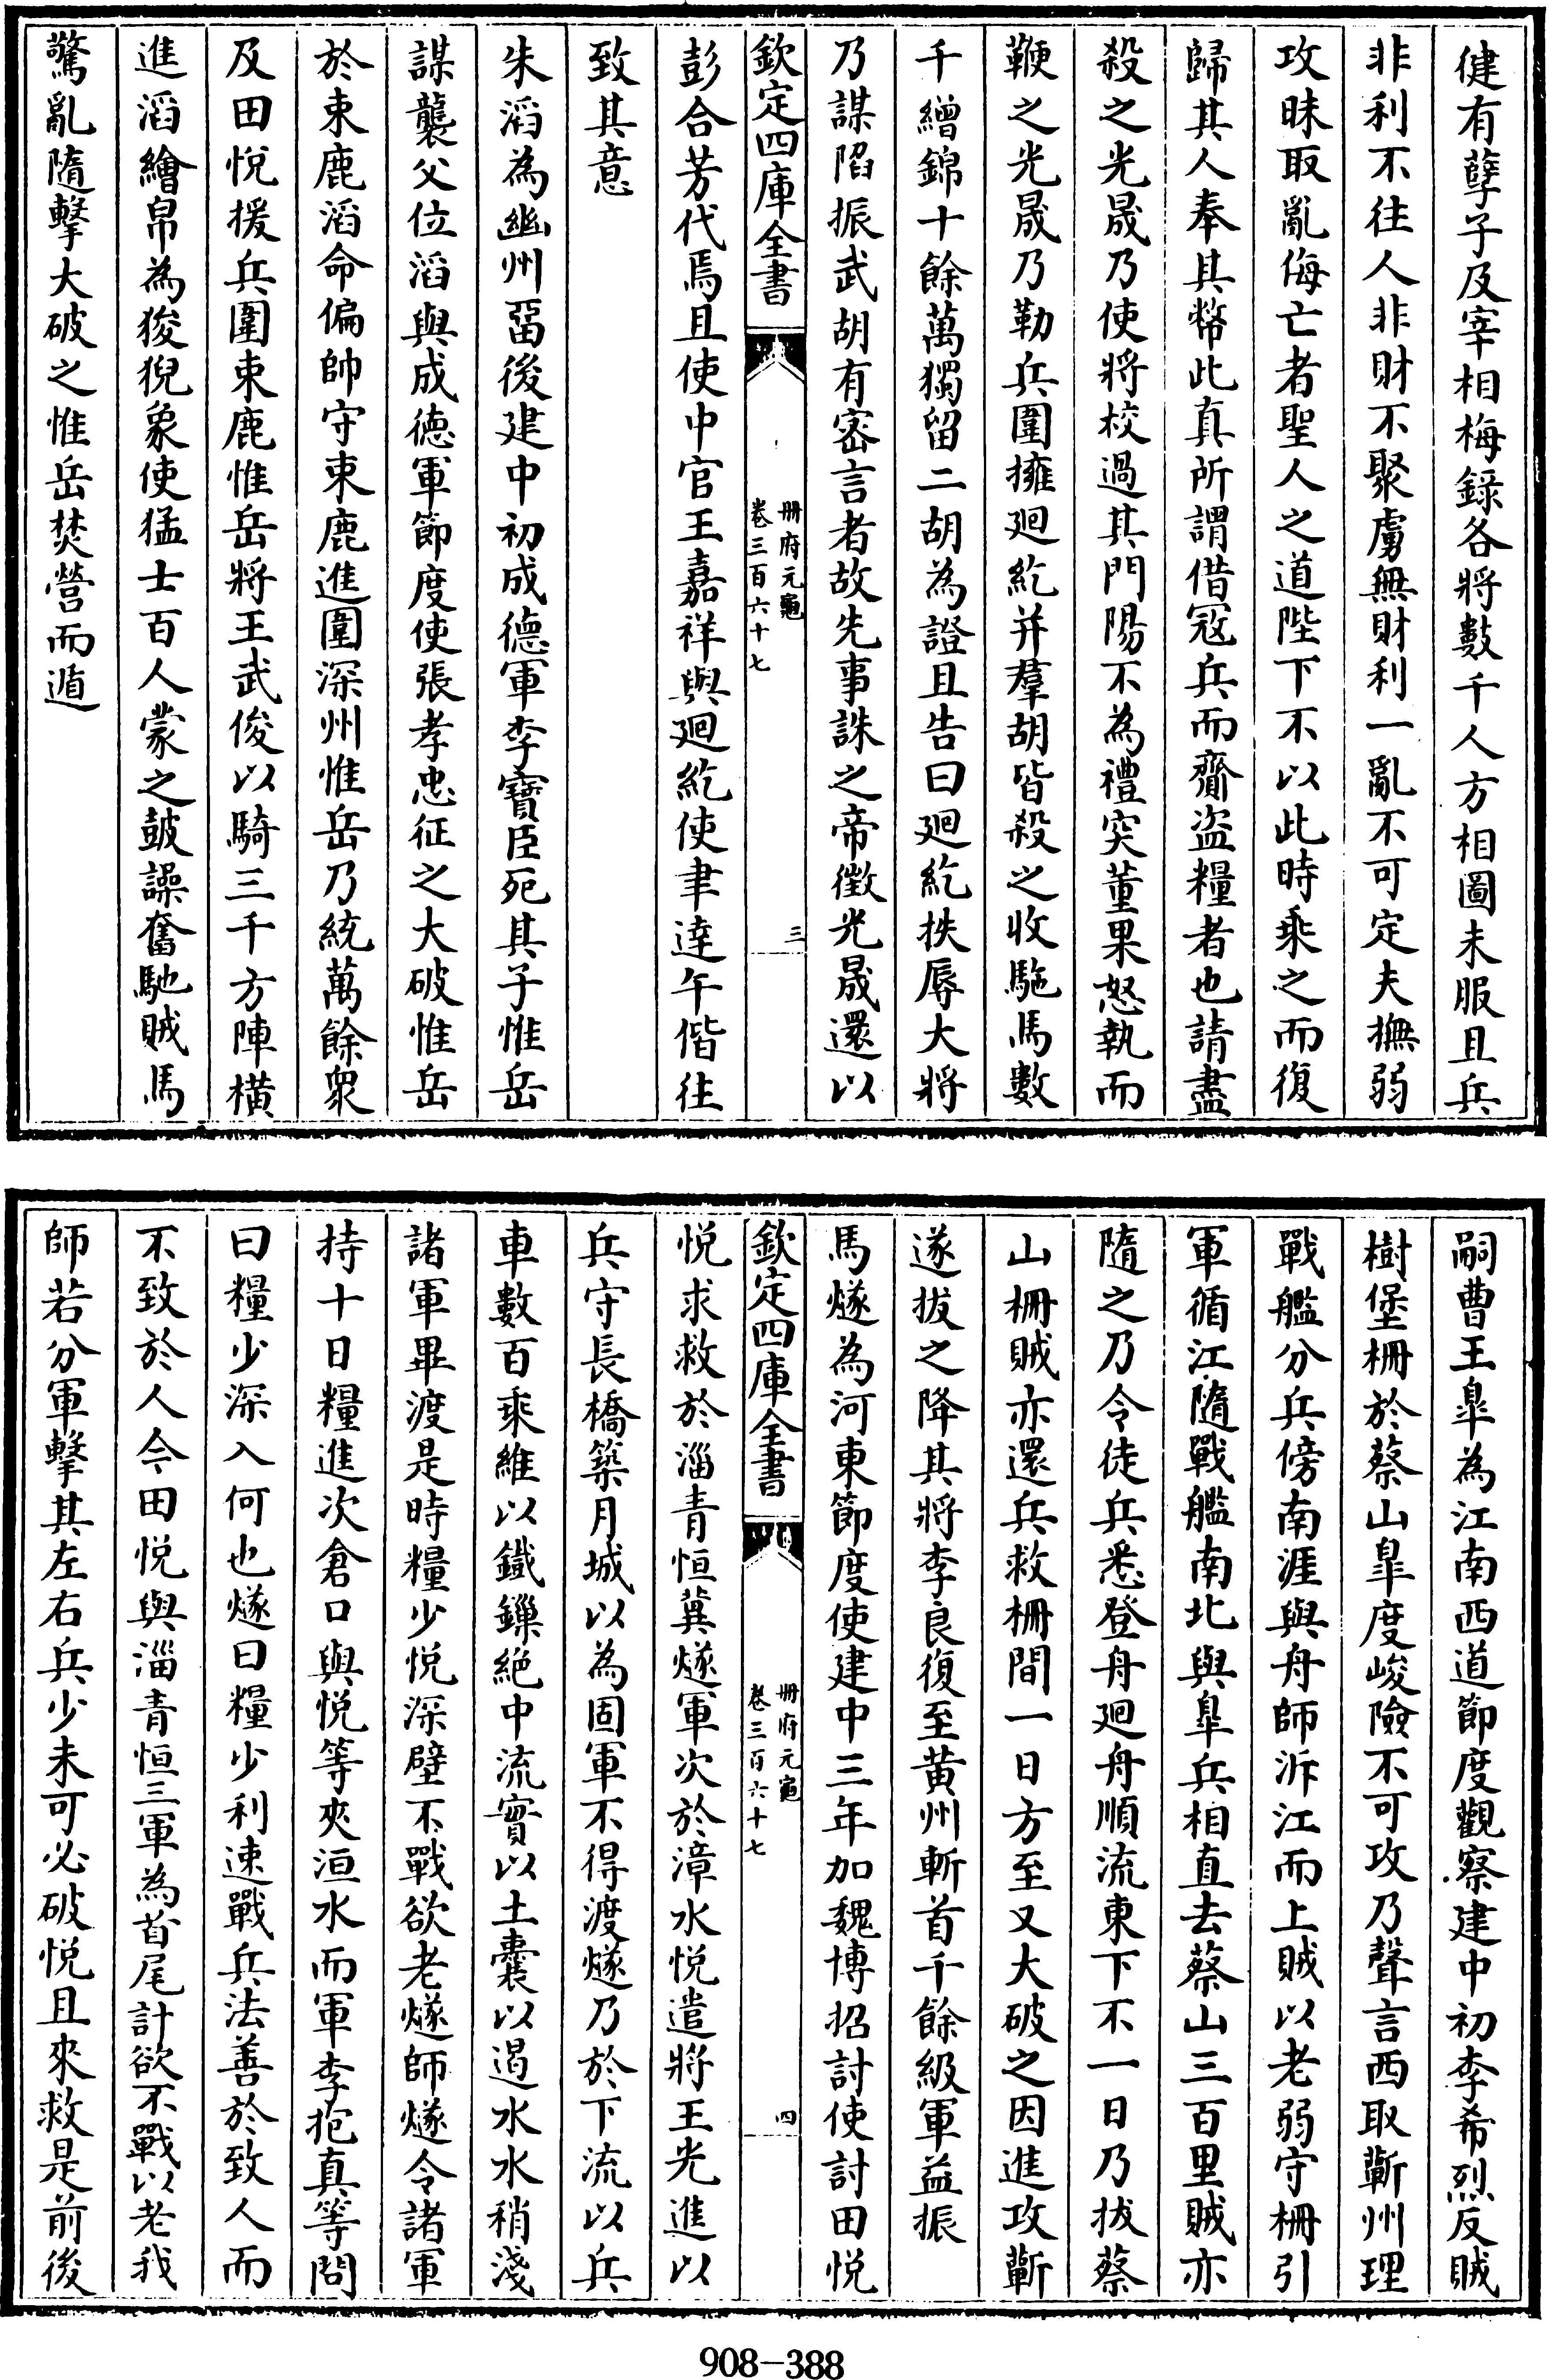 健有孽子及宰相梅錄各將數千人方相圖未服且兵
非利不往人非財不聚虜無財利一亂不可定夫撫弱
攻昧取亂侮亡者聖人之道陛下不以此時乘之而復
歸其人奉其幣此真所謂借寇兵而齎盜糧者也請盡
殺之光晟乃使將校過其門陽不為禮突董果怒執而
鞭之光晟乃勒兵圍擁廻紇并羣胡皆殺之收駞馬數
千繒錦十餘萬獨留二胡為證且告曰廻紇抶辱大將
乃謀陷振武胡有密言者故先事誅之帝徵光晟還以
欽定四庫全書
冊府元龜
卷三百六十七
三
彭合芳代焉且使中官王嘉祥與廻紇使聿逹午偕往
致其意
朱滔為幽州留後建中初成德軍李寶臣死其子惟岳
謀襲父位滔與成德軍節度使張孝忠征之大破惟岳
於束鹿滔命偏帥守束鹿進圍深州惟岳乃統萬餘衆
及田悅援兵圍束鹿惟岳將王武俊以騎三千方陣橫
進滔繪帛為狻猊象使猛士百人蒙之鼓譟奮馳賊馬
驚亂隨擊大破之惟岳焚營而遁
嗣曹王臯為江南西道節度觀察建中初李希烈反賊
樹堡柵於蔡山臯度峻險不可攻乃聲言西取蘄州理
戰艦分兵傍南涯與舟師泝江而上賊以老弱守柵引
軍循江隨戰艦南北與臯兵相直去蔡山三百里賊亦
隨之乃令徒兵悉登舟廻舟順流東下不一日乃拔蔡
山柵賊亦還兵救柵間一日方至又大破之因進攻蘄
遂拔之降其將李良復至黃州斬首千餘級軍益振
馬燧為河東節度使建中三年加魏博招討使討田悅
欽定四庫全書
冊府元龜
卷三百六十七
四
悅求救於淄青恒冀燧軍次於漳水悅遣將王光進以
兵守長橋築月城以為固軍不得渡燧乃於下流以兵
車數百乘維以鐵鏁絕中流實以土囊以遏水水稍淺
諸軍畢渡是時糧少悅深壁不戰欲老燧師燧令諸軍
持十日糧進次倉口與悅等夾洹水而軍李抱真等問
曰糧少深入何也燧曰糧少利速戰兵法善於致人而
不致於人今田悅與淄青恒三軍為首尾計欲不戰以老我
師若分軍擊其左右兵少未可必破悅且來救是前後
908-388